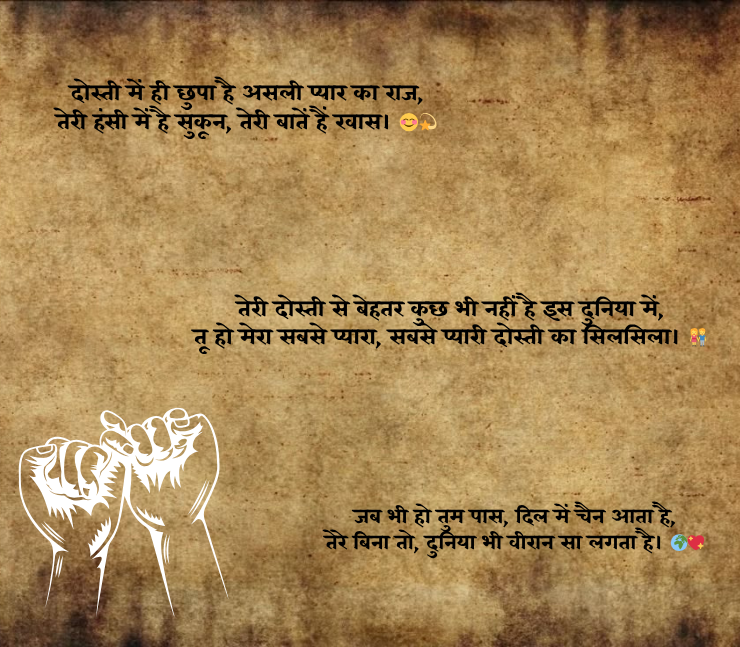 दोस्ती में ही छुपा है असली प्यार का राज,
तेरी हंसी में है सुकून, तेरी बातें हैं खास। 😊💫
तेरी दोस्ती से बेहतर कुछ भी नहीं है इस दुनिया में,
तू हो मेरा सबसे प्यारा, सबसे प्यारी दोस्ती का सिलसिला। 👫
जब भी हो तुम पास, दिल में चैन आता है,
तेरे बिना तो, दुनिया भी वीरान सा लगता है। 🌍💖